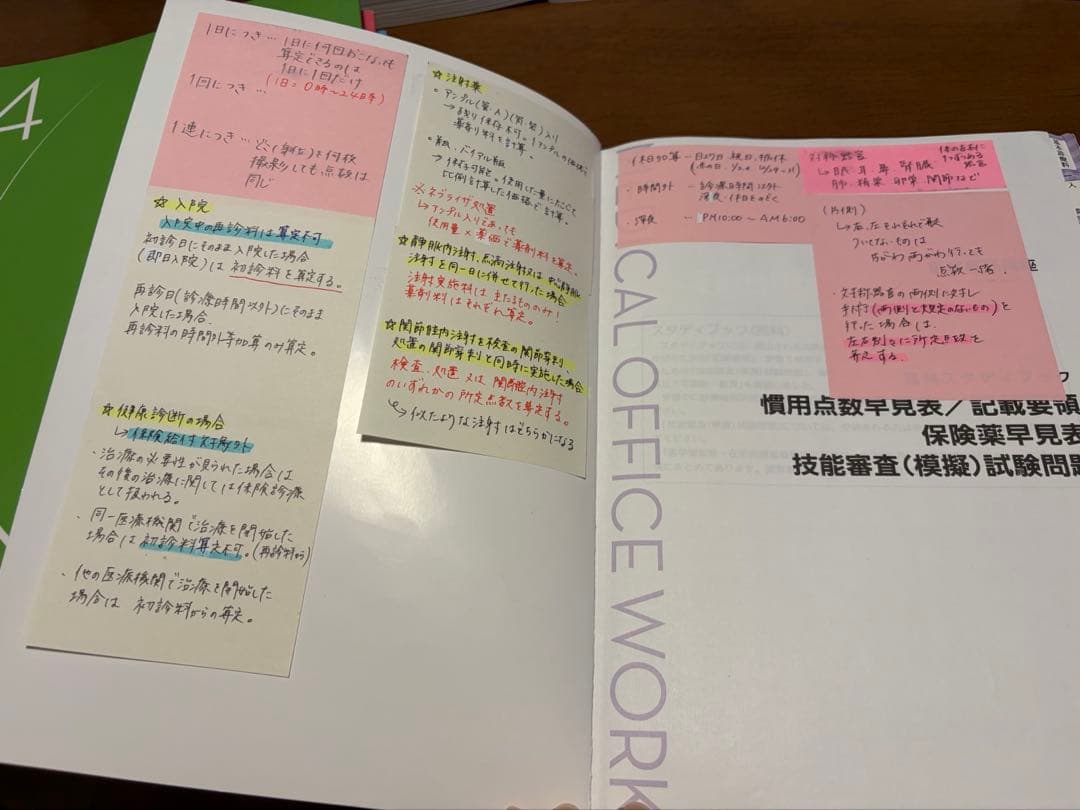 4
1日につき… 1日に何回おこなっても
算定できるのは
1日に1回だけ
(1日=0時〜24時)
1回につき…
1連につき…
撮影しても点数は
同じ
☆入院
入院中の再診料は算定不可
初診日にそのまま入院した場合
(即日入院)は初診料を算定する。
再診日(診療時間以外)にそのまま
入院した場合、
再診料の時間外等加算のみ算定。
☆健康診断の場合
↳保険給付対象外
・治療の必要性が見られた場合は
その後の治療に関しては保険診療
として扱われる。
・同一医療機関で治療を開始した
場合は初診料算定不可。(再診料から)
・他の医療機関で治療を開始した
場合は 初診料からの算定。
☆注射薬
。アンプル(管・A)(筒・袋)入り
→残り保存不可。1アンプルの
薬剤料を計算。
。瓶、バイアル瓶
→保存可能。使用した量に応じて
比例計算した価格で計算。
※ネブライザ処置
↳アンプル入りであっても
使用量×薬価で薬剤料を算定。
☆静脈内注射、点滴注射又は中心静脈
注射を同一日に併せて行った場合
注射実施料は主たるもののみ!
薬剤料はそれぞれ算定。
☆関節腔内注射を検査の関節穿刺、
処置の関節穿刺と同時に実施した場合
検査、処置又は関節腔内注射
のいずれかの所定点数を算定する。
↳似たような注射はどちらかになる
・休日加算 ー 日曜日 祝日
・時間外 ー 診療時間以外
深夜・休日をのぞく
・深夜 ー PM10:00〜AM6:00
対称器官
体の左右に
1つずつある
器官
↳眼、耳、鼻、腎臓
肺、精巣、卵巣、関節など
(片側)
↳右、左をそれぞれで
ついてないものは
点数一緒。
・対称器官の両側に対し
手術(両側と規定のないもの)を
行った場合は、
左右別々に所定点数を
算定する。
CAL OFFICE WORK
座
慣用点数早見表/記載要領
保険薬早見表
技能審査(模擬)試験問題